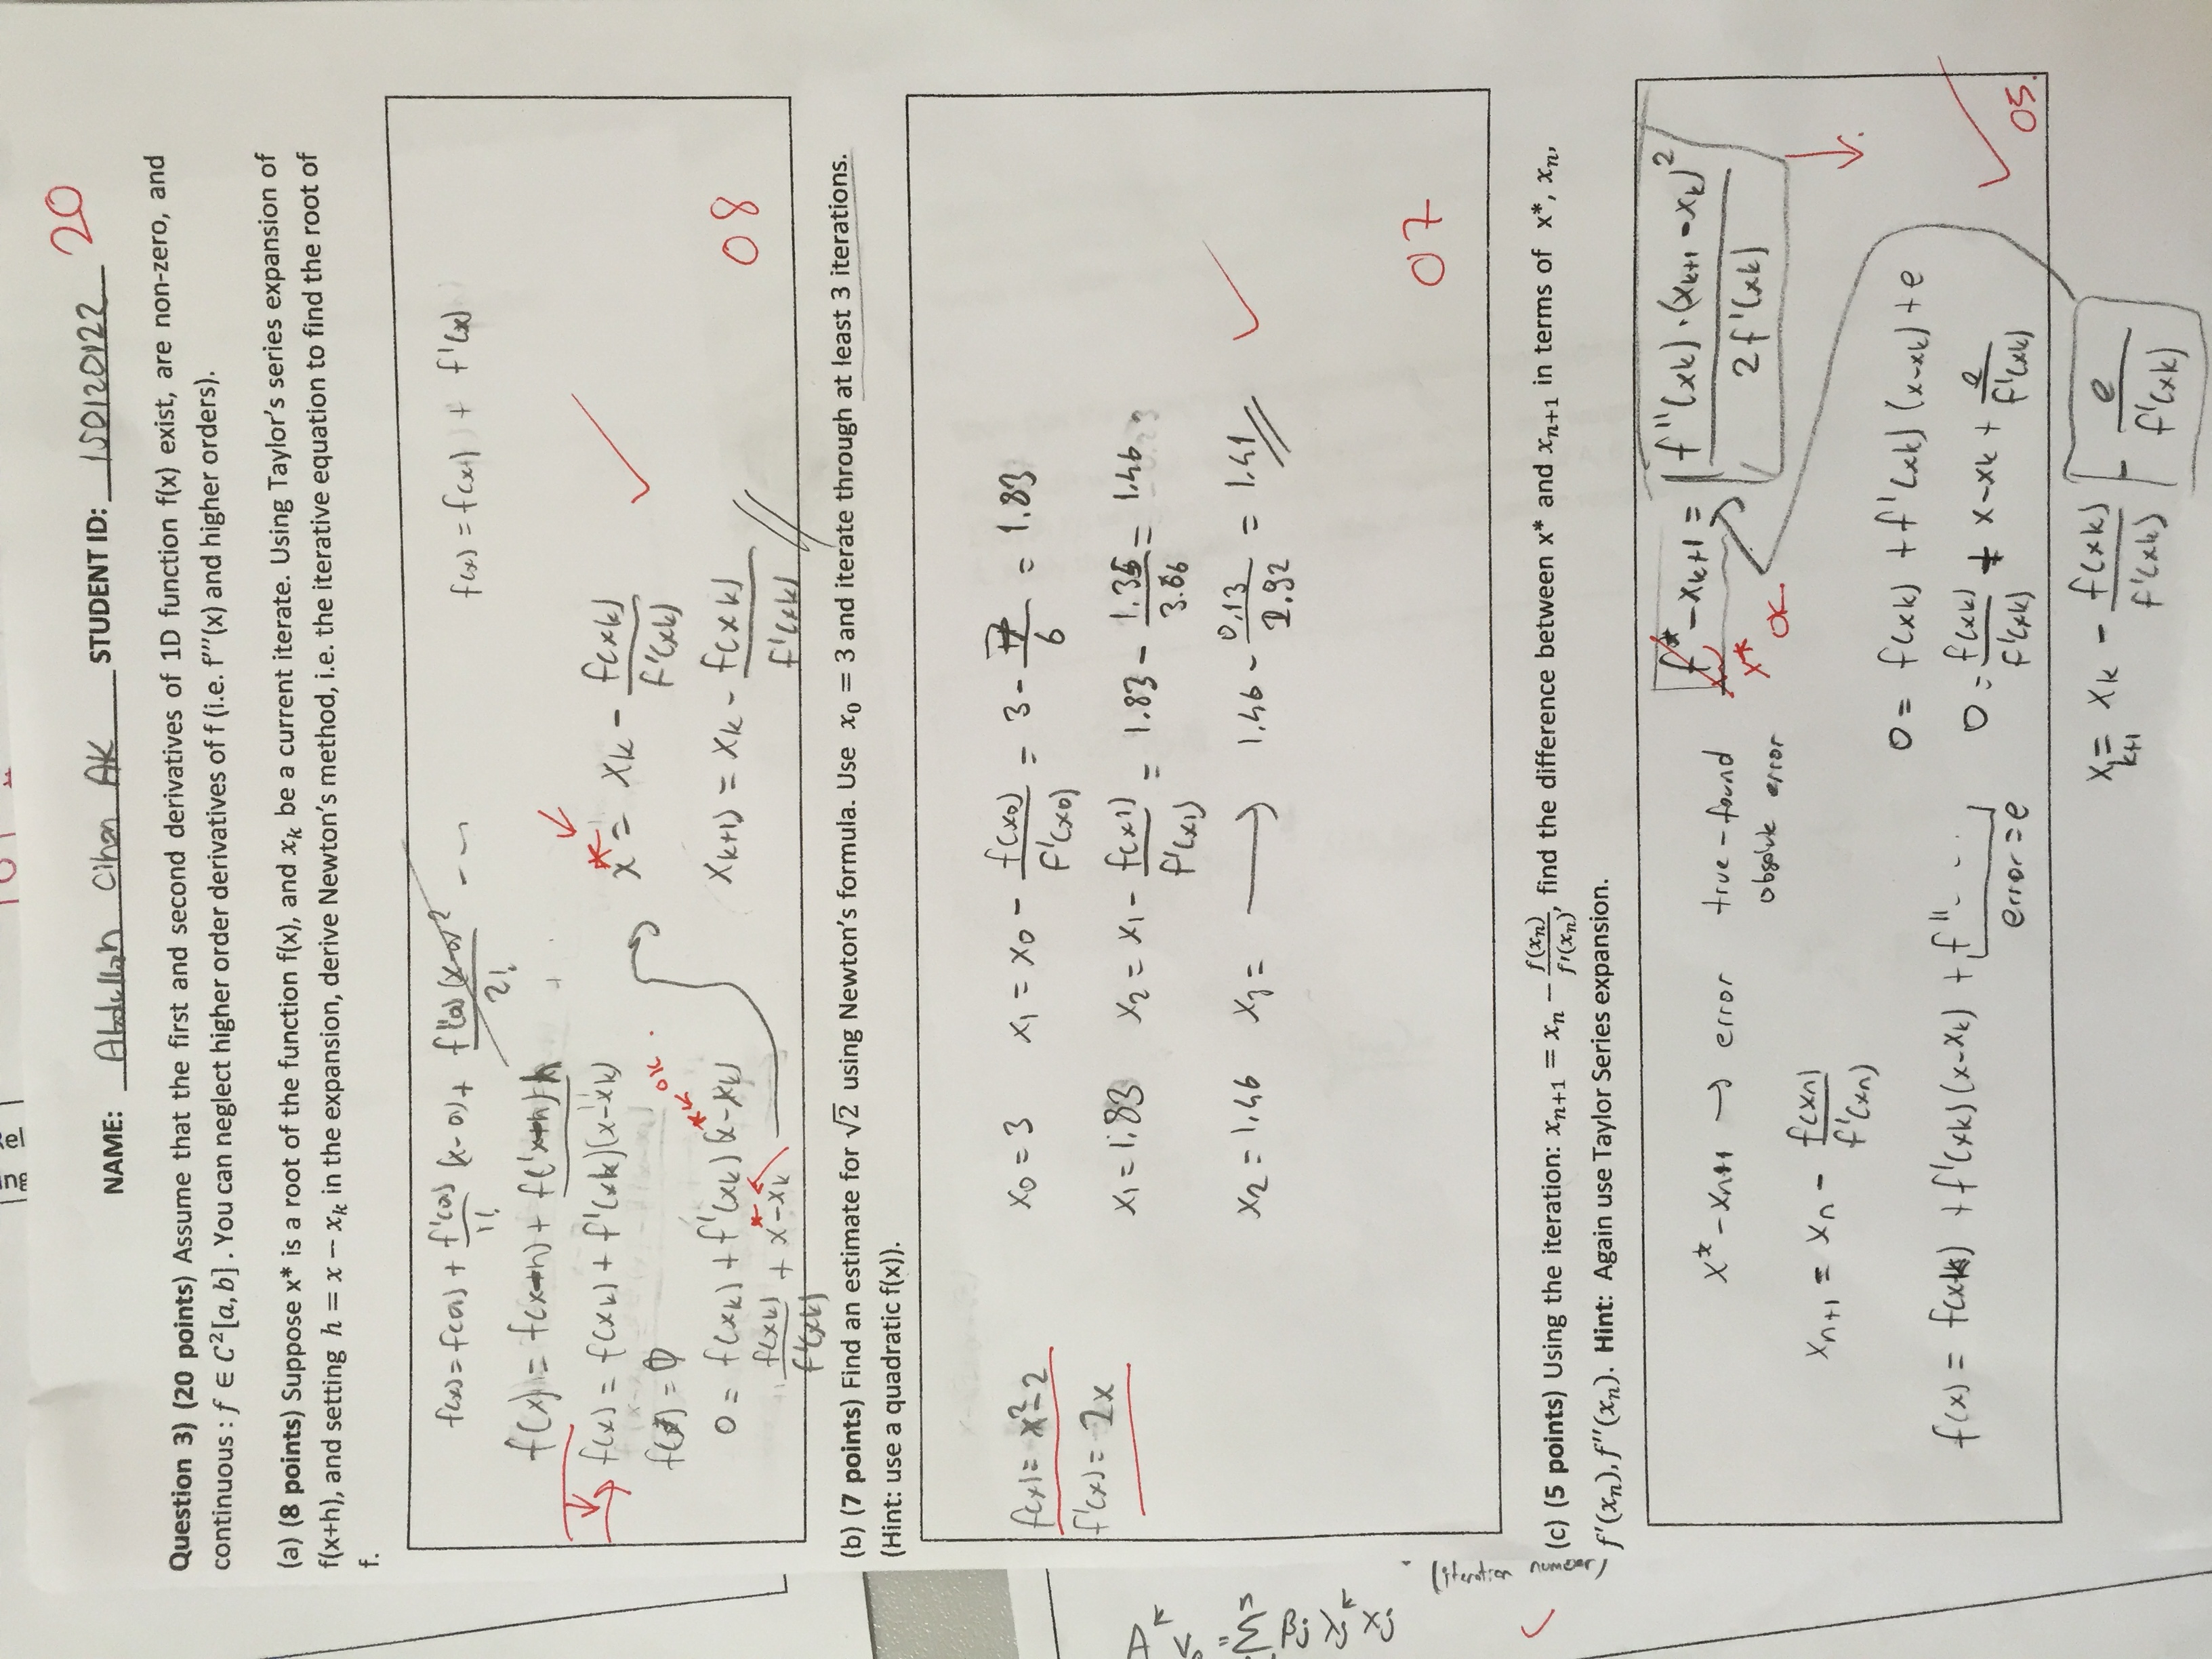 NAME: Abdullah Cihan AK STUDENT ID: 150120122 20
Question 3) (20 points) Assume that the first and second derivatives of 1D function f(x) exist, are non-zero, and
continuous : f ∈ C²[a, b] . You can neglect higher order derivatives of f (i.e. f'''(x) and higher orders).
(a) (8 points) Suppose x* is a root of the function f(x), and xₖ be a current iterate. Using Taylor's series expansion of
f(x+h), and setting h = x − xₖ in the expansion, derive Newton's method, i.e. the iterative equation to find the root of
f.
f(x) = f(a) + f'(a)/1! (x-a) + f''(a)(x-a)²/2! ---
f(x) = f(x1) + f'(x)
f(x) = f(x+h) + f('x+h)h
f(x) = f(xk) + f'(xk)(x-xk)
f(x*) = 0
ok.
0 = f(xk) + f'(xk)(x*-xk)
f(xk)/f'(xk) + x*-xk
x* = xk - f(xk)/f'(xk)
x(k+1) = xk - f(xk)/f'(xk)
08
(b) (7 points) Find an estimate for √2 using Newton's formula. Use x₀ = 3 and iterate through at least 3 iterations.
(Hint: use a quadratic f(x)).
f(x) = x²-2
f'(x) = 2x
x0 = 3 x1 = x0 - f(x0)/f'(x0) = 3 - 7/6 = 1.83
x1 = 1.83 x2 = x1 - f(x1)/f'(x1) = 1.83 - 1.35/3.66 = 1.46
x2 = 1.46 x3 = → 1.46 - 0.13/2.92 = 1.41
07
Aᵏ v₀ = Σⁿ βj λjᵏ xj
(iteration number)
(c) (5 points) Using the iteration: xₙ₊₁ = xₙ − f(xₙ)/f'(xₙ), find the difference between x* and xₙ₊₁ in terms of x*, xₙ,
f'(xₙ), f''(xₙ). Hint: Again use Taylor Series expansion.
x* - xn+1 → error true - found
absolute error
f* - xk+1 = f''(xk)·(xk+1 - xk)²/2f'(xk)
x*
OK
xn+1 = xn - f(xn)/f'(xn)
f(x) = f(xk) + f'(xk)(x-xk) + f''- . .
error = e
0 = f(xk) + f'(xk)(x-xk) + e
0 = f(xk)/f'(xk) + x-xk + e/f'(xk)
05.
xk+1 = xk - f(xk)/f'(xk) - e/f'(xk)